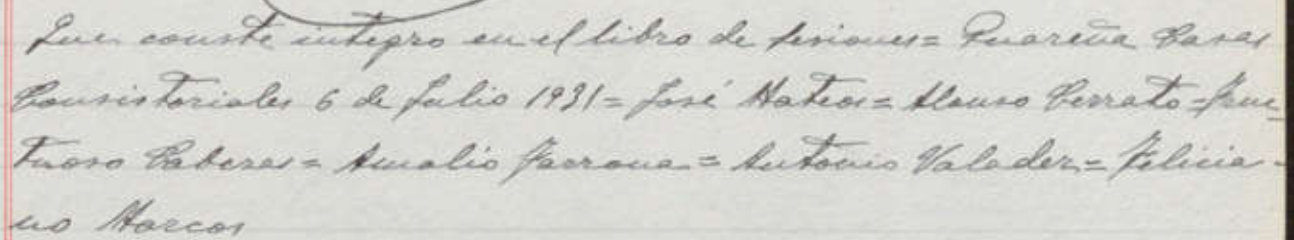 Que conste integro en el libro de sesiones= Guareña Casas
Consistoriales 6 de Julio 1931= José Mateos= Alonso Cerrato= Fruc
tuoso Cabezas= Amalio Parrona= Antonio Valadez= Felicia-
no Marcos